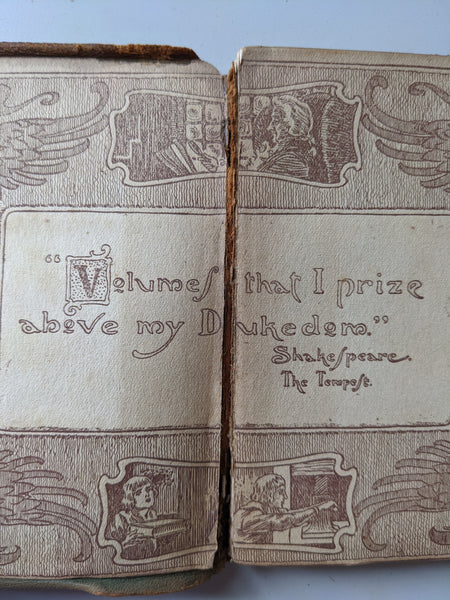 "Volumes that I prize
above my Dukedom."
Shakespeare.
The Tempest.